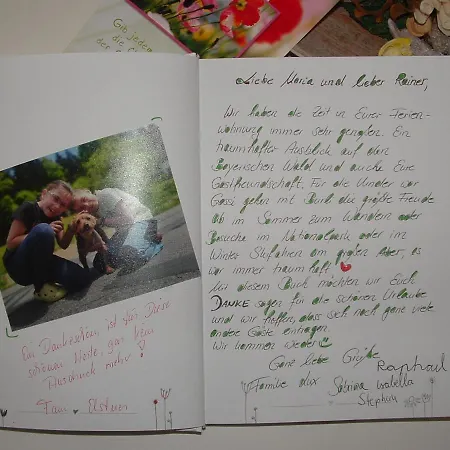 Gib jedem
die
der
Liebe Maria und lieber Rainer,
Wir haben die Zeit in Eurer Ferien-
wohnung immer sehr genoßen. Ein
traumhafter Ausblick auf den
Bayerischen Wald und auch Eure
Gastfreundschaft. Für die Kinder war
Gassi gehen mit die große Freude
ob im Sommer zum Wandern oder
Besuche im Nationalpark oder im
Winter Skifahren am großen Arber, es
war immer traumhaft
Mit diesem Buch möchten wir Euch
DANKE sagen für die schönen Urlaube
und wir hoffen, dass sich noch ganz viele
andere Gäste eintragen.
Wir kommen wieder
Ganz liebe Grüße
Raphael
Familie Sabrina Isabella
Stephan
Ein Dankeschön ist für Diese
schönen Worte, gar kein
Ausdruck mehr!
Fam.